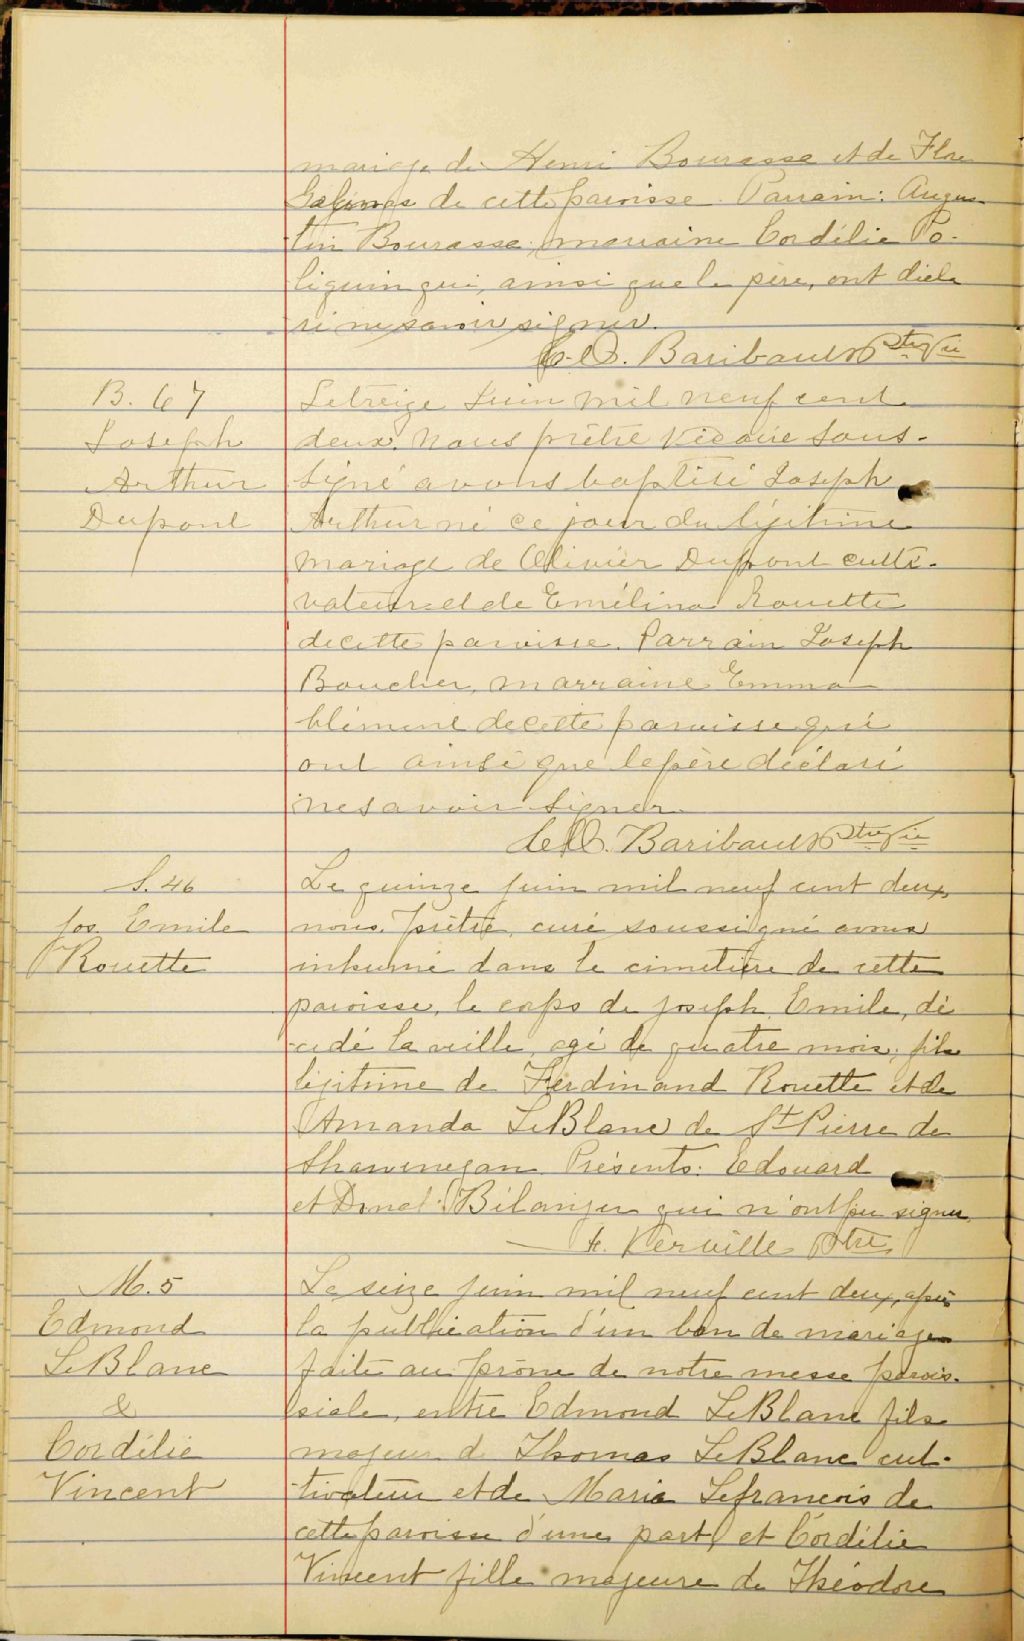 mariage de Henri Bourassa et de Flore
de cette paroisse. Parrain: Augus-
tin Bourassa, marraine Cordélie Po-
liquin qui, ainsi que le père, ont décla
ré ne savoir signer.
Baribault Ptre Vic
B. 67
Joseph
Arthur
Dupont
Le treize Juin mil neuf cent
deux. Nous prêtre vicaire sous-
signé avons baptisé Joseph
Arthur né ce jour du légitime
mariage de Olivier Dupont culti-
vateur et de Emélina Rouette
de cette paroisse. Parrain Joseph
Boucher, marraine Emma
Clément de cette paroisse qui
ont ainsi que le père déclaré
ne savoir signer.
Baribault Ptre Vic
S. 46
Jos. Emile
Rouette
Le quinze juin mil neuf cent deux,
nous, prêtre, curé soussigné avons
inhumé dans le cimetière de cette
paroisse, le corps de Joseph Emile, dé
cédé la veille, agé de quatre mois, fils
légitime de Ferdinand Rouette et de
Amanda LeBlanc de St Pierre de
Shawenegan. Présents: Edouard
et Donat Bélanger qui n'ont pu signer.
H. Kerville Ptre
M. 5
Edmond
LeBlanc
&
Cordélie
Vincent
Le seize juin mil neuf cent deux, après
la publication d'un ban de mariage
faite au prône de notre messe parois-
siale, entre Edmond LeBlanc fils
majeur de Thomas LeBlanc cul-
tivateur et de Marie Lefrancois de
cette paroisse d'une part, et Cordélie
Vincent fille majeure de Théodore